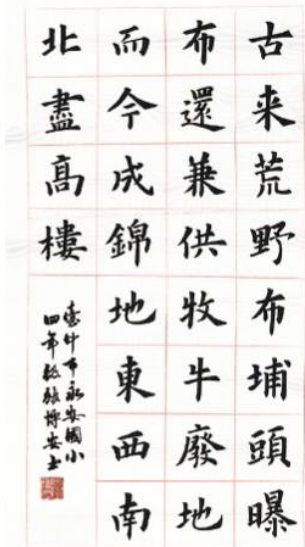 古来荒野布埔頭曝
布還兼供牧牛廢地
而今成錦地東西南
北盡高樓
臺中市永安國小
四年級張博安書